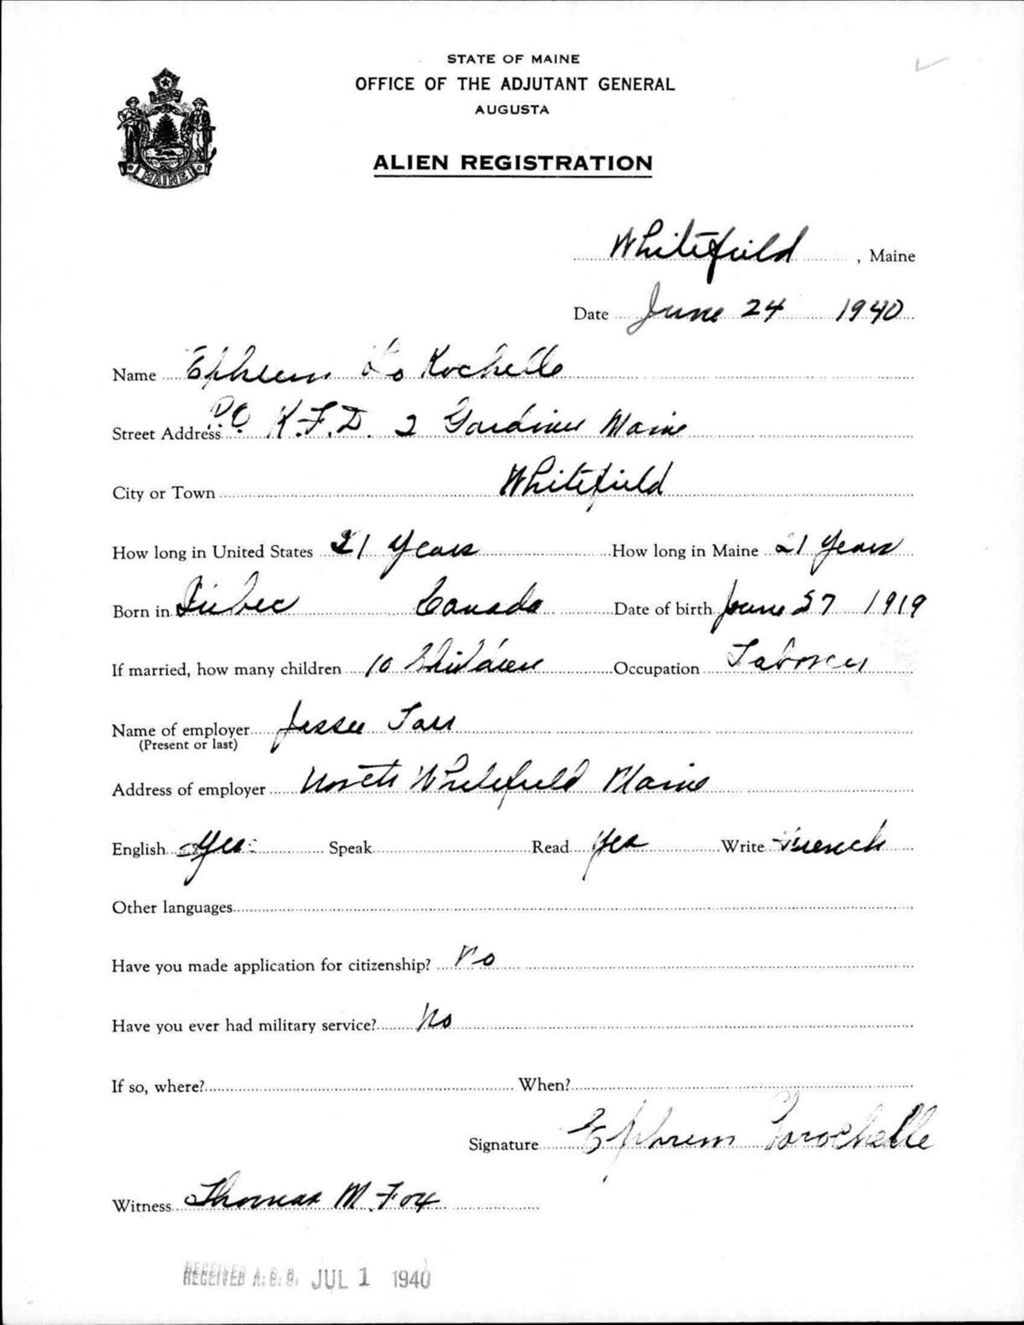 STATE OF MAINE
OFFICE OF THE ADJUTANT GENERAL
AUGUSTA
ALIEN REGISTRATION
MAINE
Whitefield, Maine
Date June 24 1940
Name Ephrem La Rochelle
Street Address P.O R.F.D. 2 Gardiner Maine
City or Town Whitefield
How long in United States 21 years How long in Maine 21 years
Born in Quebec Canada Date of birth June 27 1919
If married, how many children 10 Children Occupation Laborer
Name of employer Jesse Tarr
(Present or last)
Address of employer North Whitefield Maine
English Yes Speak Read Yes Write French
Other languages
Have you made application for citizenship? No
Have you ever had military service? No
If so, where? When?
Signature Ephrem Larochelle
Witness Thomas M. Fox
RECEIVED A.G.O. JUL 1 1940